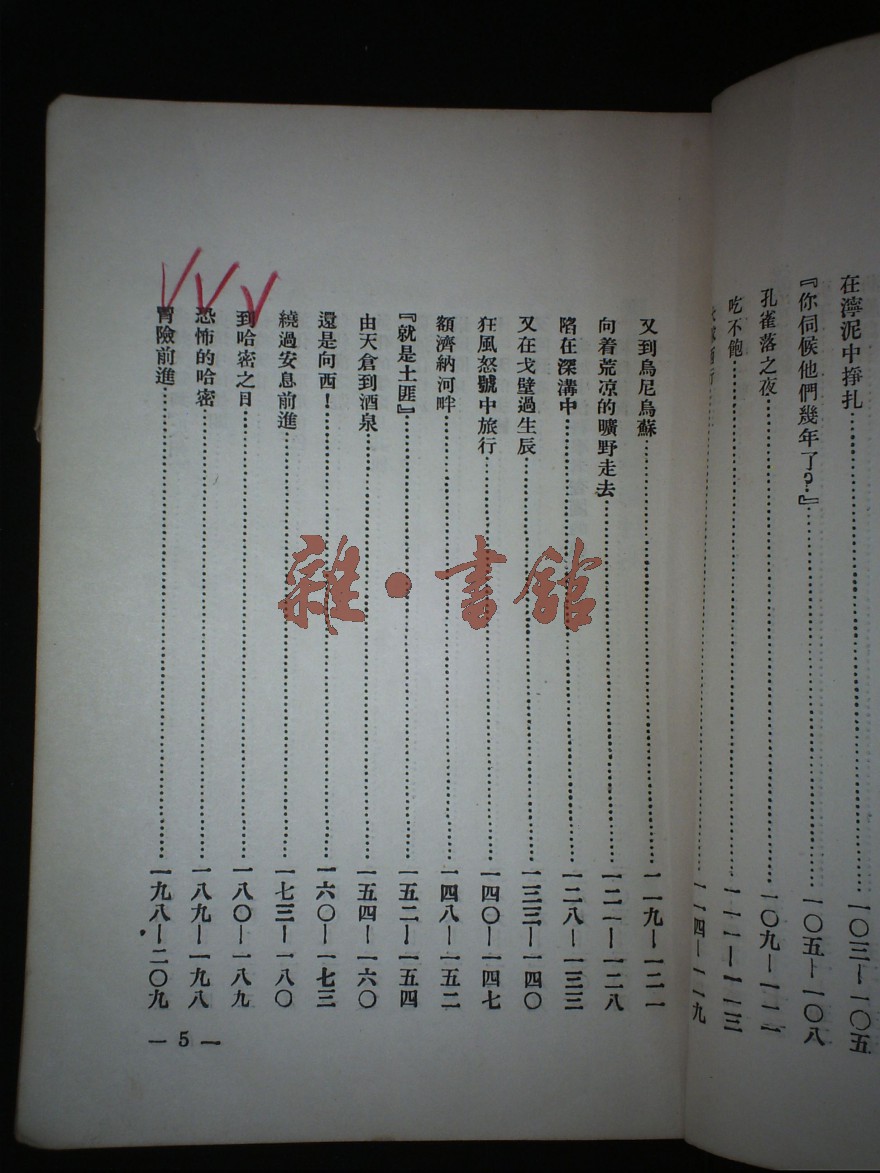 在濘泥中掙扎……一〇三—一〇五
『你伺候他們幾年了?』……一〇五—一〇八
孔雀落之夜……一〇九—一一一
吃不飽……一一一—一一三
一一四—一一九
又到烏尼烏蘇……一一九—一二一
向着荒凉的曠野走去……一二一—一二八
陷在深溝中……一二八—一三三
又在戈壁過生辰……一三三—一四〇
狂風怒號中旅行……一四〇—一四七
額濟納河畔……一四八—一五二
『就是土匪』……一五二—一五四
由天倉到酒泉……一五四—一六〇
還是向西!……一六〇—一七三
繞過安息前進……一七三—一八〇
到哈密之日……一八〇—一八九
恐怖的哈密……一八九—一九八
冒險前進……一九八—二〇九
— 5 —
雜·書館